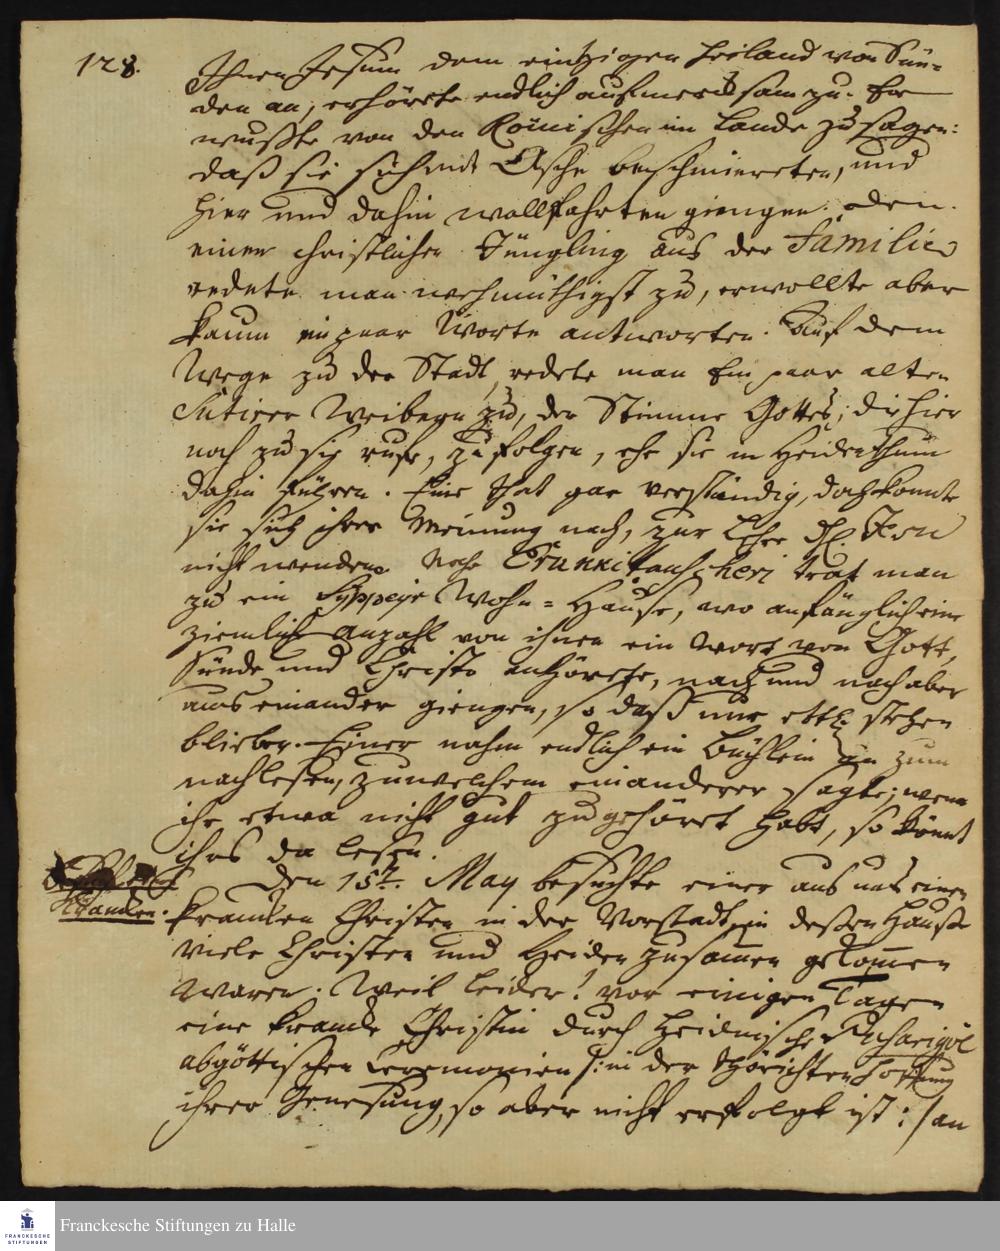 128.
Ihnen Jesum dem eintzigen Heiland von Sün-
den an, er hörete endlich aufmercksam zu. Er
wußte von den Römischen im Lande zu sagen:
daß sie sich mit Asche beschmiereten, und
hier und dahin wallfahrten giengen. Den
einen christlichen Jüngling aus der Familie
redete man wehmüthigst zu, er wollte aber
kaum ein paar Worte antworten. Auf dem
Wege zu der Stadt redete man Ein paar alten
Sutirer Weibern zu, der Stimme Gottes, die hier
noch zu sie rufe, zu folgen, ehe sie im Heidenthum
dahin führen. Eine that gar verständig, doch konnte
sie sich ihrer Meinung nach, zur Lehre
nicht wenden. Nahe trat man
zu ein Wohn-Hause, wo anfänglich eine
ziemliche Anzahl von ihnen ein Wort von Gott,
Sünde und Christo anhörete, nach und nach aber
aus einander giengen, so daß nur ettl. stehen
blieben. Einer nahm endlich ein Büchlein an zum
nachlesen, zu welchem ein anderer sagte; wenn
ihr etwa nicht gut zugehöret habt, so könnt
ihrs da lesen.
Den 15t. May besuchte einer aus uns einen
Krancken.
krancken Christen in der Vorstadt, in deßen Hause
viele Christen und Heiden zusammen gekommen
waren. Weil leider! vor einigen Tagen
eine krancke Christin durch Heidnische
abgöttischen Ceremonien /: in der thörichten Hoffnung
ihrer Genesung, so aber nicht erfolgt ist :/ an
Franckesche Stiftungen zu Halle
FRANCKESCHE
STIFTUNGEN